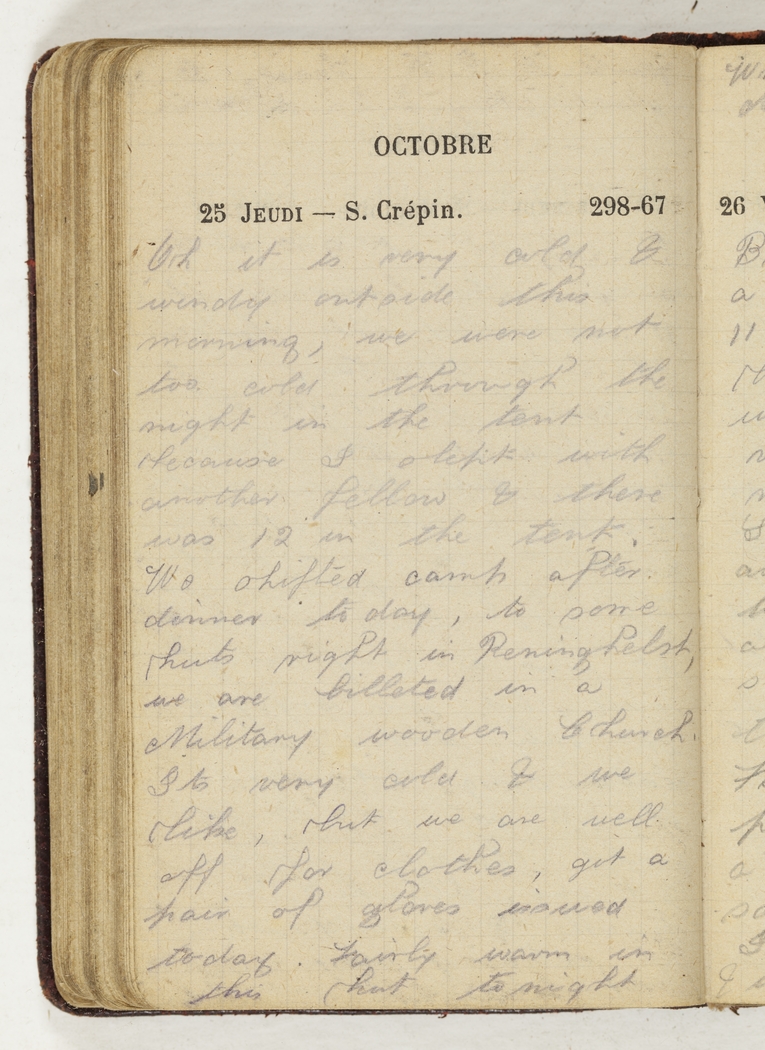 OCTOBRE
25 JEUDI — S. Crépin. 298-67
Oh it is very cold &
windy outside this
morning, we were not
too cold through the
night in the tent
because I slept with
another fellow & there
was 12 in the tent.
We shifted camp after
dinner today, to some
huts right in Reninghelst,
we are billeted in a
Military wooden Church.
Its very cold & we
like, but we are well
off for clothes, got a
pair of gloves issued
today. Fairly warm in
this hut tonight
26
B
a
11